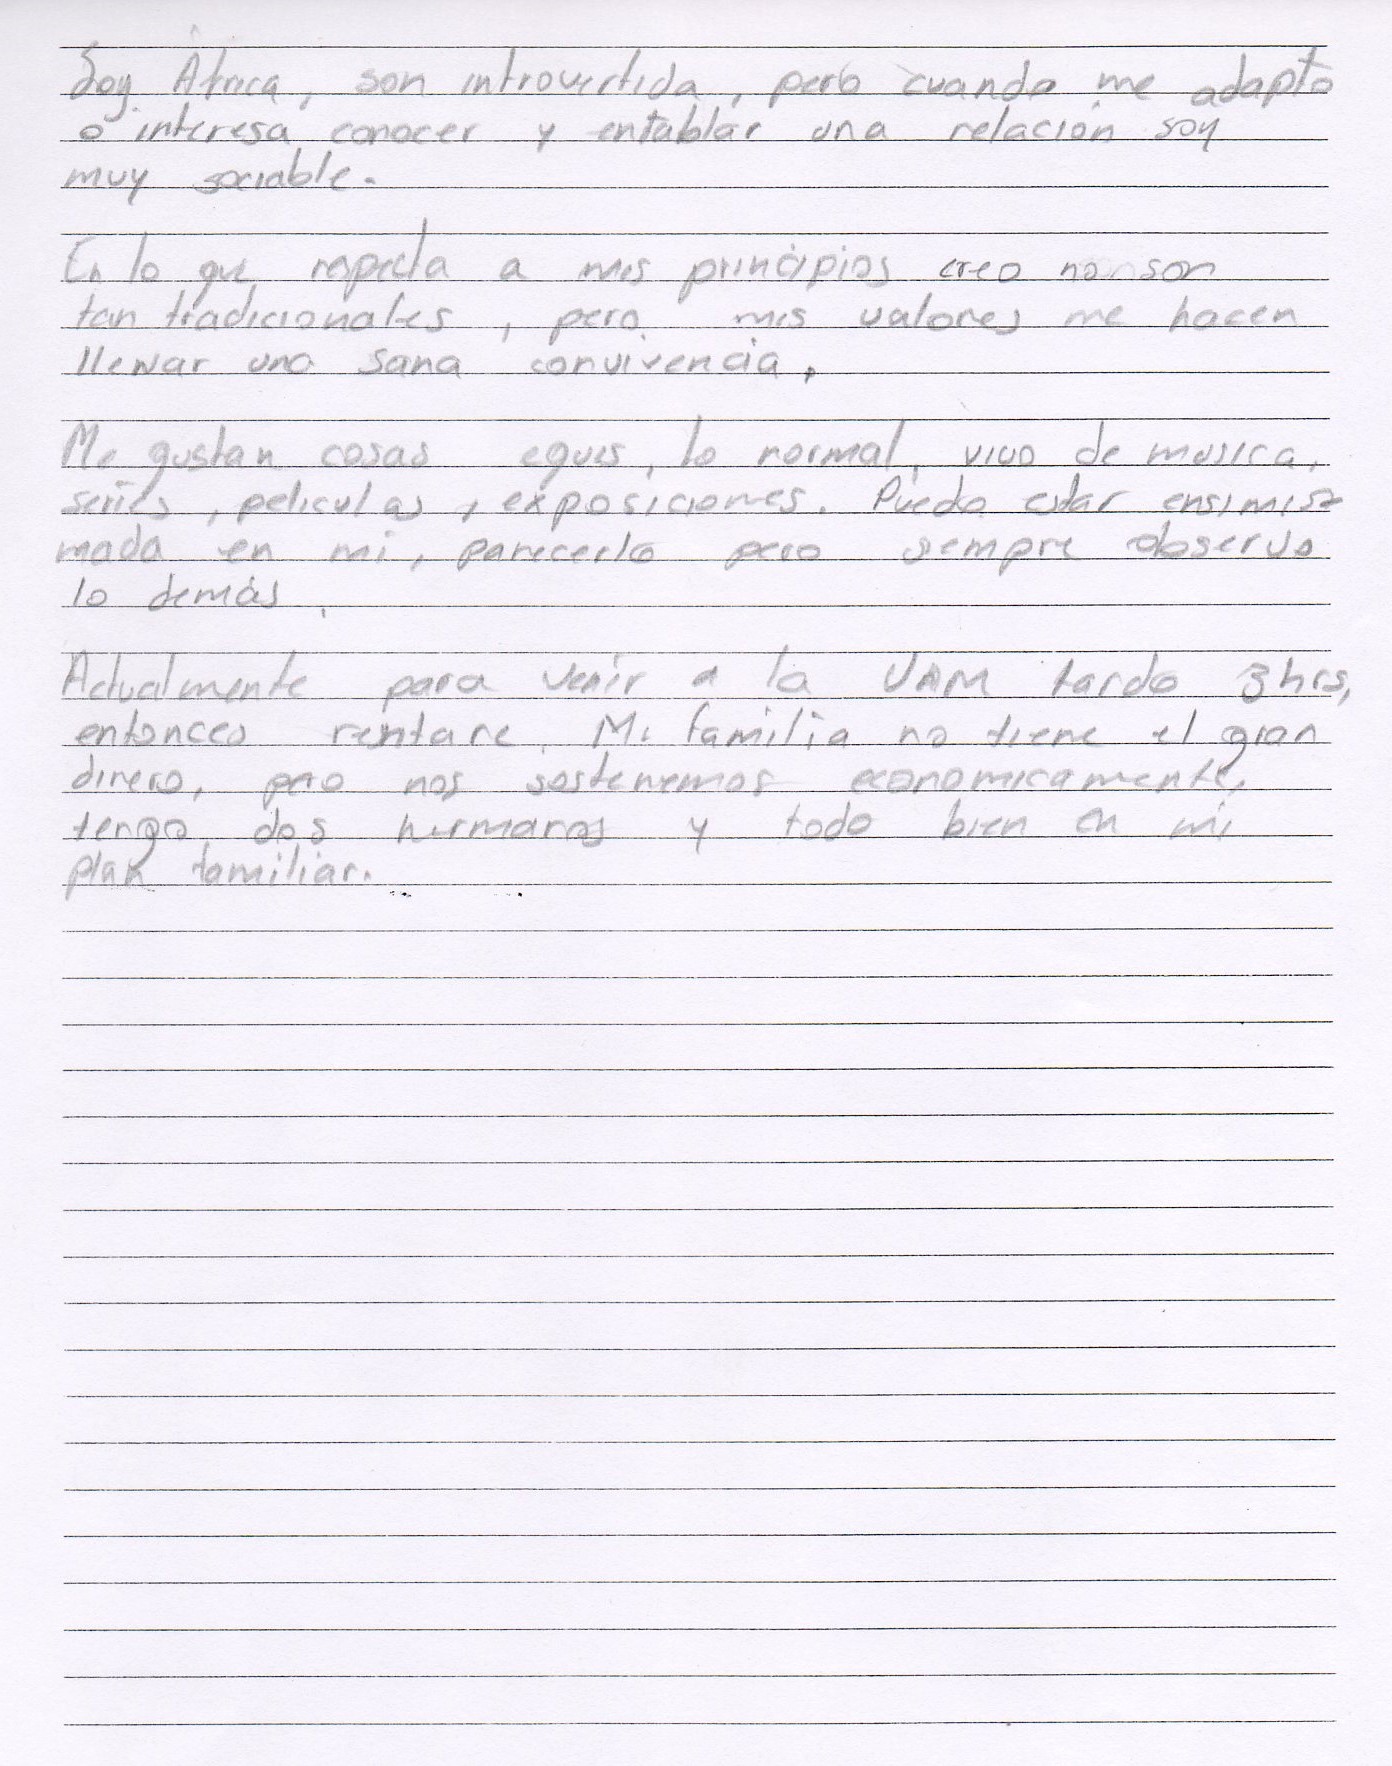 Soy África, son introvertida, pero cuando me adapto
o interesa conocer y entablar una relación soy
muy sociable.
En lo que respecta a mis principios creo no son
tan tradicionales, pero mis valores me hacen
llevar una sana convivencia.
Me gustan cosas equis, lo normal, vivo de musica,
series, peliculas, exposiciones. Puedo estar ensimis
mada en mi, parecerlo pero siempre observo
lo demás.
Actualmente para venir a la UAM tardo 3 hrs,
entonces rentare. Mi familia no tiene el gran
dinero, pero nos sostenemos economicamente,
tengo dos hermanos y todo bien en mi
plan familiar.